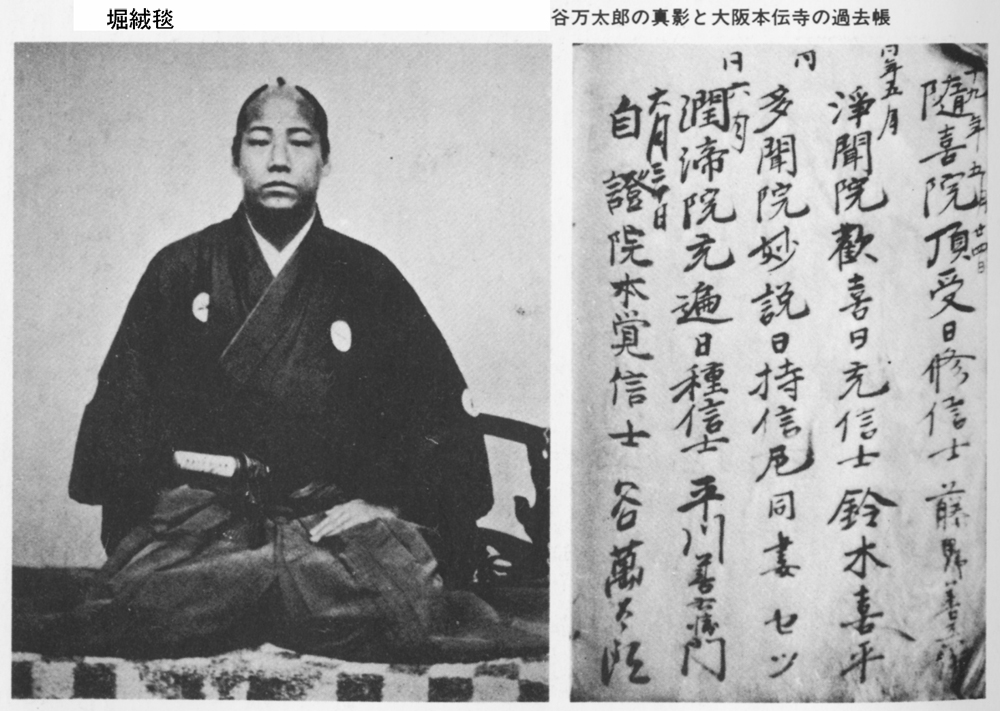 堀絨毯
谷万太郎の真影と大阪本伝寺の過去帳
十九年五月廿四日
隨喜院頂受日修信士 藤野善
同年五月
淨聞院歡喜日充信士 鈴木喜平
同
多聞院妙説日持信尼 同妻セツ
同六月
潤渧院充遍日種信士 平川善右衛門
六月三十日
自證院本覚信士 谷萬太郎